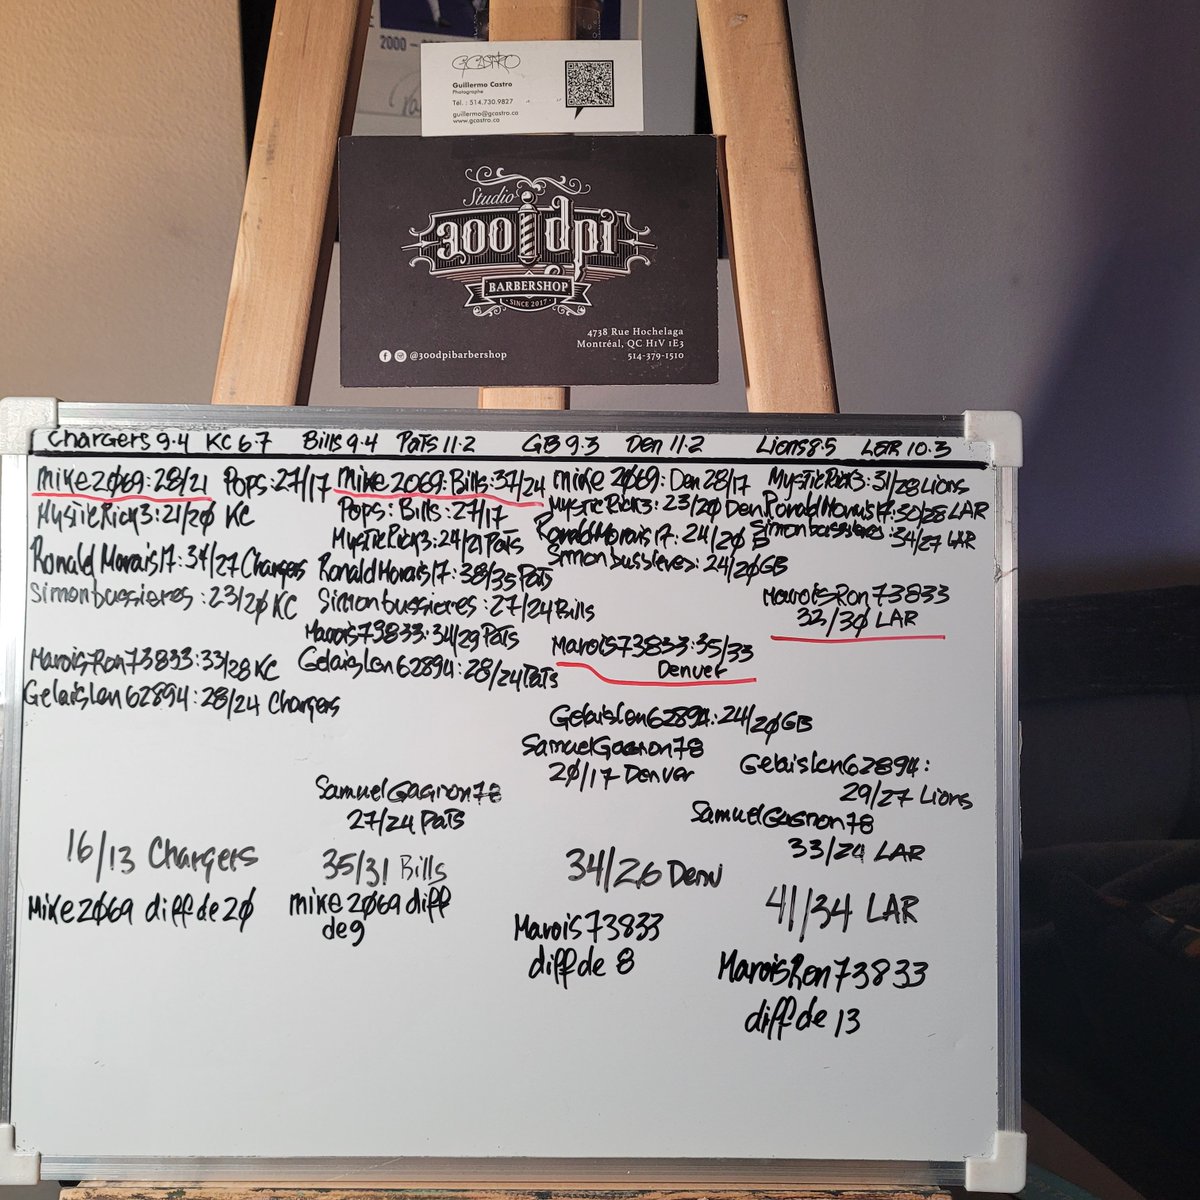 2000 –
GCASTRO
Guillermo Castro
Photographe
Tél. : 514.730.9827
guillermo@gcastro.ca
www.gcastro.ca
Studio
300 dpi
BARBERSHOP
SINCE 2017
4738 Rue Hochelaga
Montréal, QC H1V 1E3
514-379-1510
@300dpibarbershop
Chargers 9.4 KC 6.7 Bills 9.4 Pats 11.2 GB 9.3 Den 11.2 Lions 8.5 LAR 10.3
Mike2069: 28/21 Pops: 27/17
MysticRick3: 21/20 KC
RonaldMorais17: 34/27 Chargers
Simonbussieres: 23/20 KC
MaroisRon73833: 33/28 KC
GelaisLen62894: 28/24 Chargers
16/13 Chargers
Mike2069 diff de 20
Mike 2069: Bills: 37/24
Pops: Bills: 27/17
MysticRick3: 24/21 Pats
RonaldMorais17: 38/35 Pats
Simonbussieres: 27/24 Bills
Marois73833: 34/29 Pats
GelaisLen62894: 28/24 Pats
SamuelGagnon78
27/24 Pats
35/31 Bills
mike2069 diff
de 9
mike 2069: Den 28/17
MysticRick3: 23/20 Den
RonaldMorais17: 24/20
Simonbussieres: 24/20 GB
Marois73833: 35/33
Denver
GelaisLen62894: 24/20 GB
SamuelGagnon78
20/17 Denver
34/26 Denv
Marois73833
diff de 8
MysticRick3: 31/28 Lions
RonaldMorais17: 30/28 LAR
Simonbussieres: 34/27 LAR
MaroisRon73833
33/30 LAR
GelaisLen62894:
29/27 Lions
SamuelGagnon78
33/24 LAR
41/34 LAR
MaroisRon73833
diff de 13